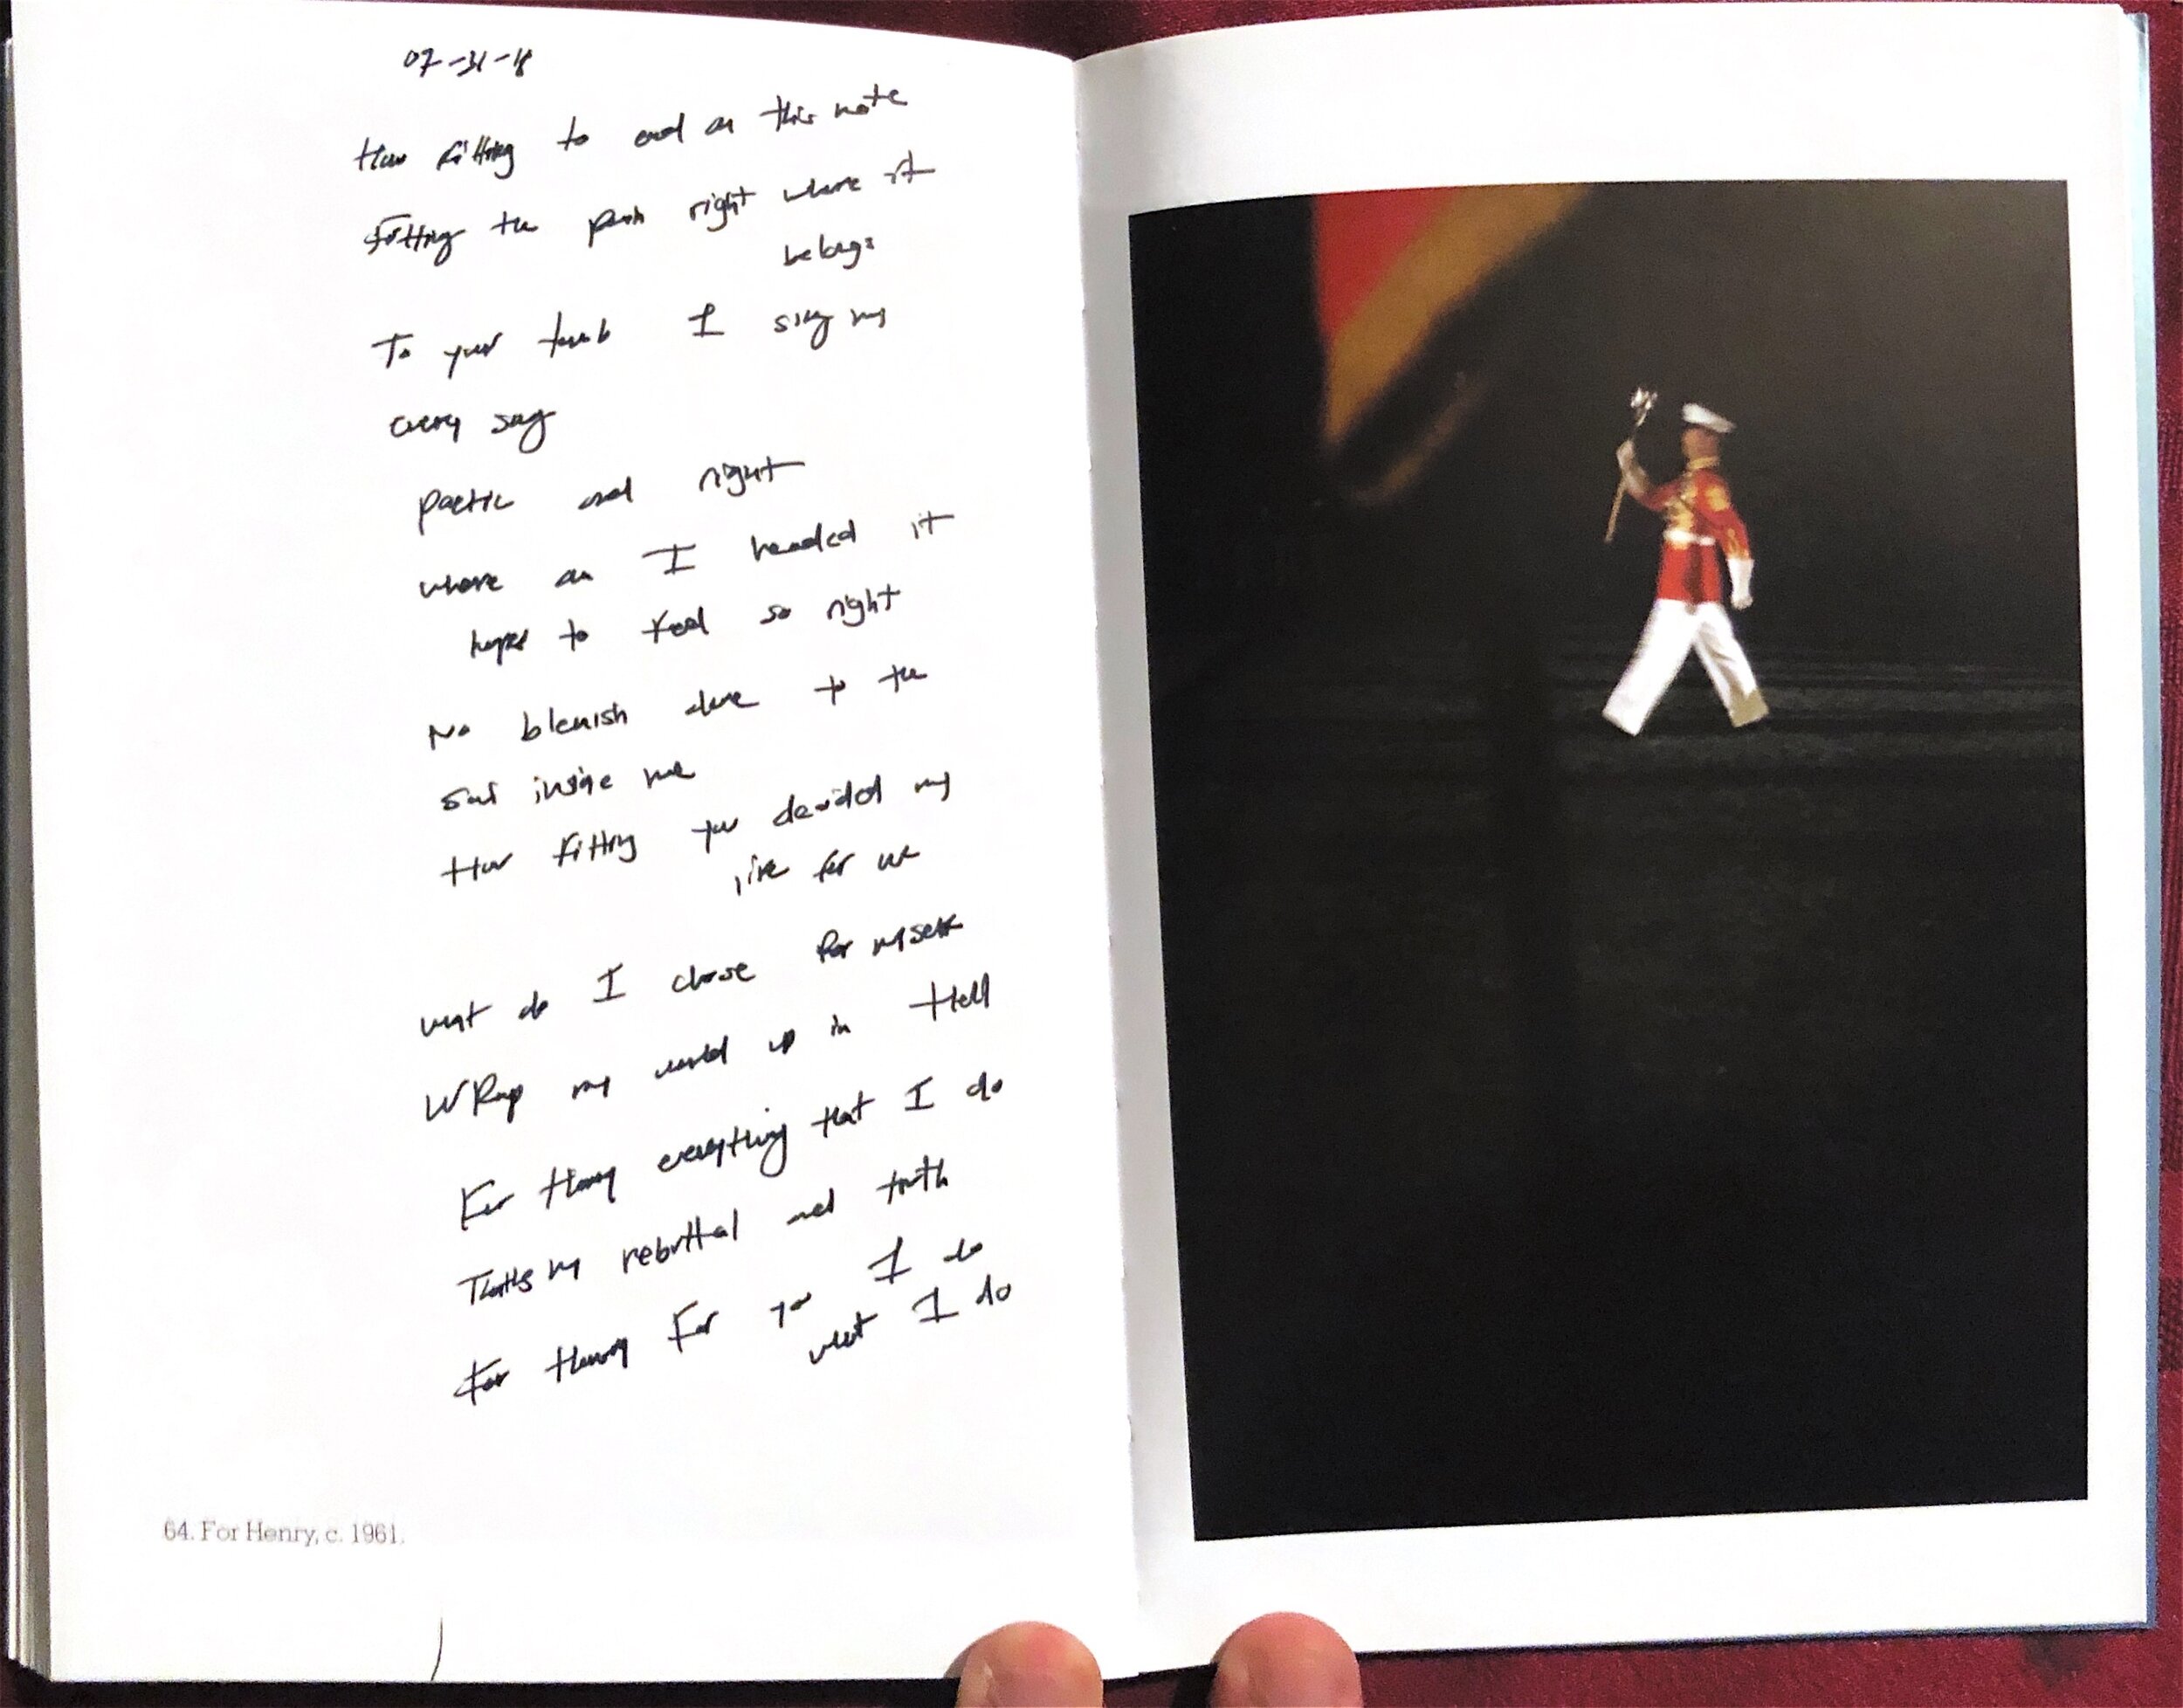 07-31-18
How fitting to end on this note
Fitting the push right where it
belongs
To your tomb I sing my
every song
Poetic and right
where am I headed it
hopes to feel so right
No blemish done to the
soul inside me
How fitting you decided my
life for me
what do I chose for myself
WRap my world up in Hell
For Henry everything that I do
Thats my rebuttal and truth
For Henry For you I do
what I do
64. For Henry, c. 1961.